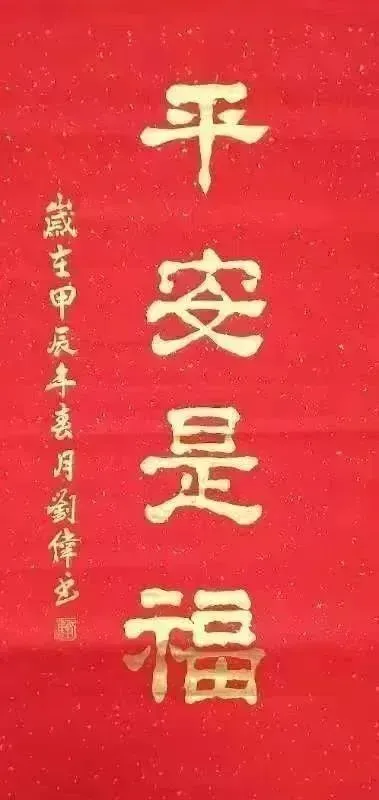 平安是福
歲在甲辰年春月劉偉书